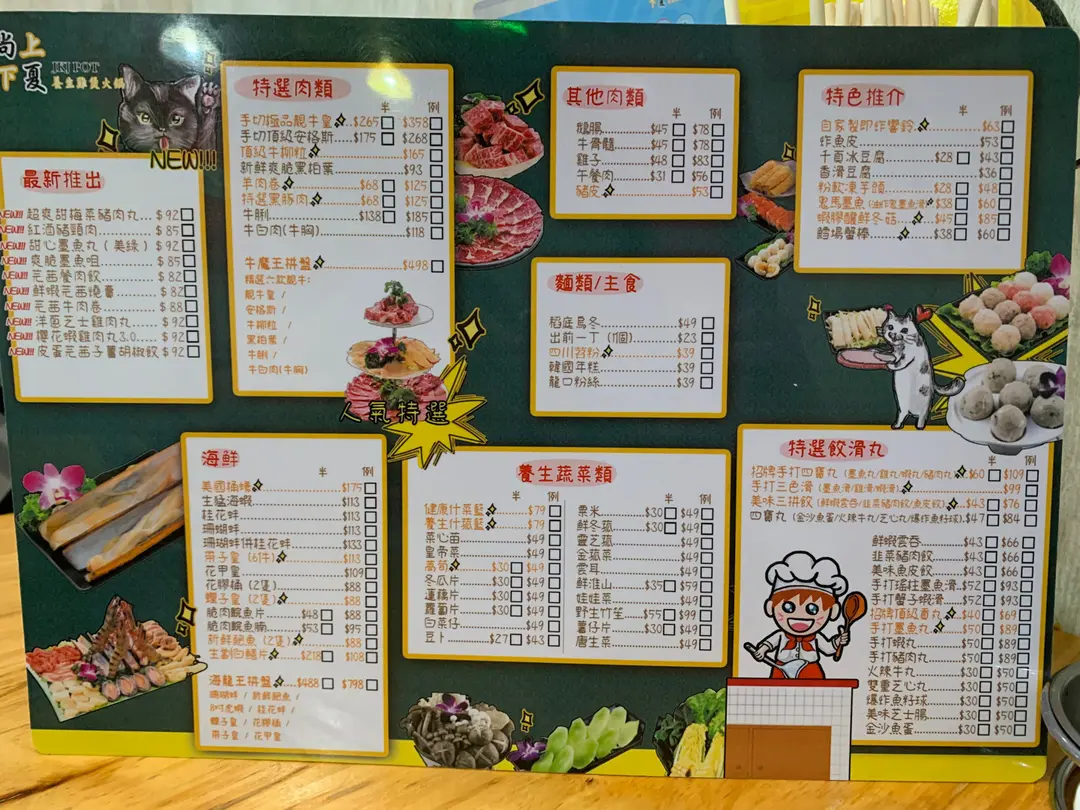 尚上
下夏
JKJ POT
養生雞煲火鍋
NEW!!!
最新推出
NEW!!! 超爽甜梅菜豬肉丸... $ 92
NEW!!! 紅酒豬頸肉... $ 85
NEW!!! 甜心墨魚丸 (美綠) $ 92
NEW!!! 爽脆墨魚咀... $ 85
NEW!!! 芫茜餐肉餃... $ 82
NEW!!! 鮮蝦芫茜燒賣... $ 82
NEW!!! 芫茜牛肉卷... $ 88
NEW!!! 洋蔥芝士雞肉丸... $ 92
NEW!!! 櫻花蝦雞肉丸3.0... $ 92
NEW!!! 皮蛋芫茜子薑胡椒餃 $ 92
特選肉類
半 例
手切極品靚牛皇...$265 $358
手切頂級安格斯...$175 $268
頂級牛柳粒...$165
新鮮爽脆黑柏葉...$93
羊肉卷...$68 $125
特選黑豚肉...$68 $125
牛脷...$138 $185
牛白肉(牛胸)...$118
牛魔王拼盤...$498
精選六款靚牛:
靚牛皇 /
安格斯 /
牛柳粒 /
黑柏葉 /
牛脷 /
牛白肉(牛胸)
人氣特選
其他肉類
半 例
鵝腸...$45 $78
牛骨髓...$45 $78
雞子...$48 $83
午餐肉...$31 $56
豬皮...$53
麵類/主食
稻庭烏冬...$49
出前一丁 (1個)...$23
四川苕粉...$39
韓國年糕...$39
龍口粉絲...$39
特色推介
半 例
自家製即炸響鈴...$63
炸魚皮...$53
千頁冰豆腐...$28 $43
香滑豆腐...$36
粉軟凍芋頭...$28 $48
鬼馬墨魚 (油炸鬼墨魚滑) $38 $60
蝦膠釀鮮冬菇...$45 $85
鱈場蟹棒...$38 $60
海鮮
半 例
美國桶蠔...$175
生猛海蝦...$113
桂花蚌...$113
珊瑚蚌...$113
珊瑚蚌併桂花蚌...$133
帶子皇 (6件)...$113
花甲皇...$109
花膠桶 (2隻)...$88
蟶子皇 (2隻)...$88
脆肉鯇魚片...$48 $88
脆肉鯇魚腩...$53 $95
新鮮鮑魚 (2隻)...$88
生劏白鱔片...$218 $108
海龍王拼盤...$488 $798
珊瑚蚌 / 新鮮鮑魚 /
桂花蚌 /
蟶子皇 / 花膠桶 /
帶子皇 / 花甲皇
養生蔬菜類
半 例
健康什菜籃...$79
養生什菇籃...$79
菜心苗...$49
皇帝菜...$49
萵筍...$30 $49
冬瓜片...$30 $49
蓮藕片...$30 $49
蘿蔔片...$30 $49
白菜仔...$49
豆卜...$27 $43
半 例
粟米...$30 $49
鮮冬菇...$30 $49
靈芝菇...$49
金菇菜...$49
雲耳...$49
鮮淮山...$35 $59
娃娃菜...$49
野生竹笙...$55 $99
薯仔片...$30 $49
唐生菜...$49
特選餃滑丸
半 例
招牌手打四寶丸 (墨魚丸/雞丸/蝦丸/豬肉丸) $60 $109
手打三色滑 (墨魚滑/雞滑/蝦滑)...$99
美味三拼餃 (鮮蝦雲吞/韭菜豬肉餃/魚皮餃)...$43 $76
四寶丸 (金沙魚蛋/火辣牛丸/芝心丸/爆炸魚籽球).$47 $84
鮮蝦雲吞...$43 $66
韭菜豬肉餃...$43 $66
美味魚皮餃...$43 $66
手打瑤柱墨魚滑...$52 $93
手打蟹子蝦滑...$52 $93
招牌頂級貢丸...$40 $69
手打墨魚丸...$50 $89
手打蝦丸...$50 $89
手打豬肉丸...$50 $89
火辣牛丸...$30 $50
雙重芝心丸...$30 $50
爆炸魚籽球...$30 $50
美味芝士腸...$30 $50
金沙魚蛋...$30 $50